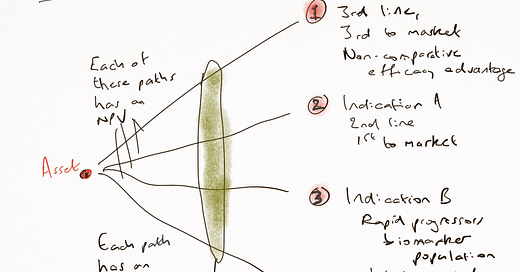 Each of
these paths
has an
NPV
Asset
Each path
has an
1
3rd line,
3rd to market
Non-comparative
efficacy advantage
2
Indication A
2nd line
1st to market
3
Indication B
Rapid progressors
biomarker
population